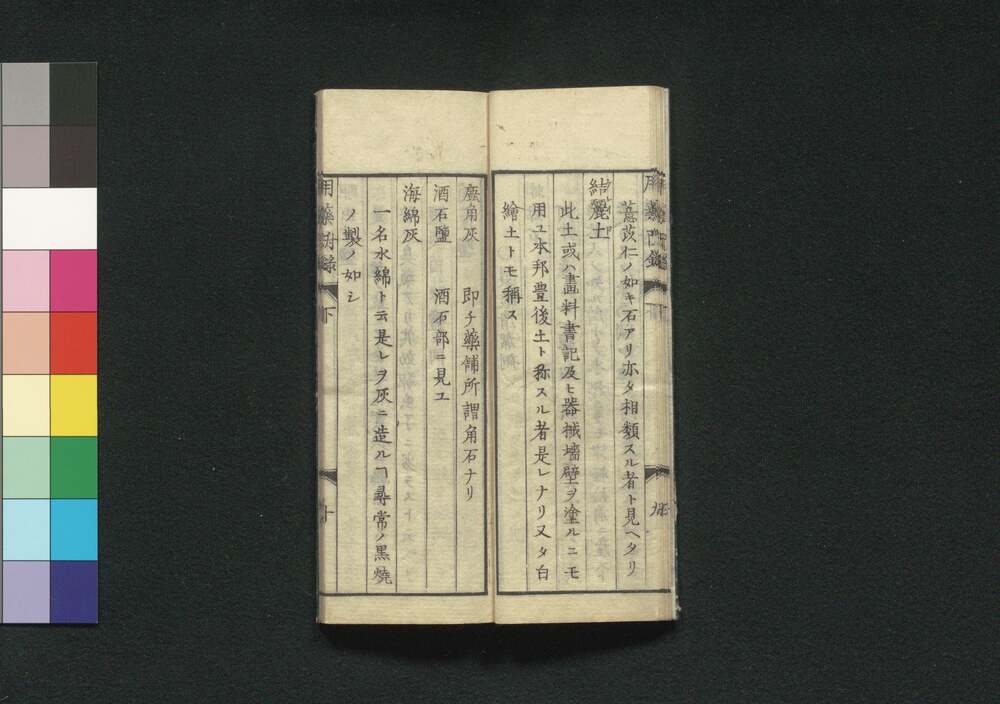 薏苡仁ノ如キ石アリ亦タ相類スル者ト見ヘタリ
結麗土
此土或ハ畫料書記及ヒ器械墻壁ヲ塗ルニモ
用ユ本邦豊後土ト称スル者是レナリ又タ白
繪土トモ稱ス
麋角灰 即チ藥舗所謂角石ナリ
酒石鹽 酒石部ニ見ユ
海綿灰
一名水綿ト云是レヲ灰ニ造ルヿ尋常ノ黒燒
ノ製ノ如シ
用藥 下 十